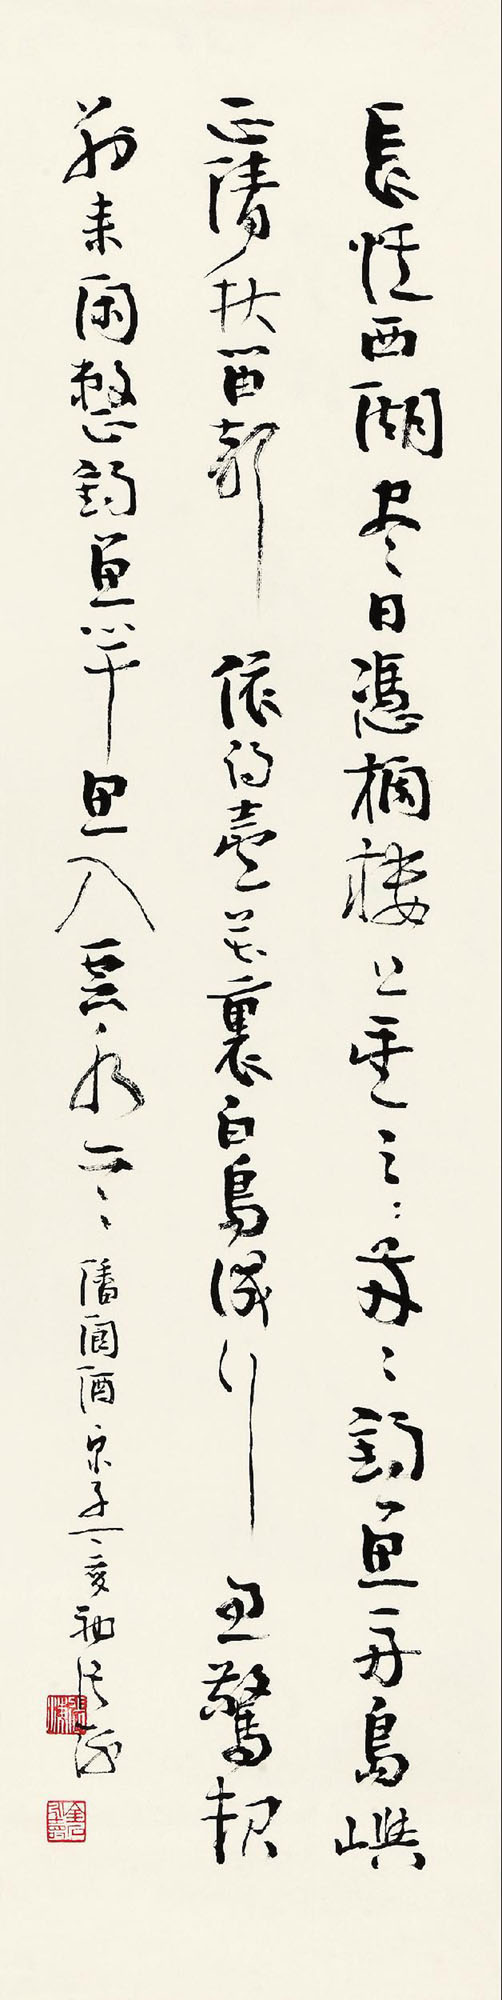 長憶西湖尽日憑欄樓上望三〻兩〻釣魚舟島嶼
正清秋笛聲依約蘆花裏白鳥成行忽驚起
別來閑整釣魚竿思入雲水寒 潘閬酒泉子 丁亥 張海
張海